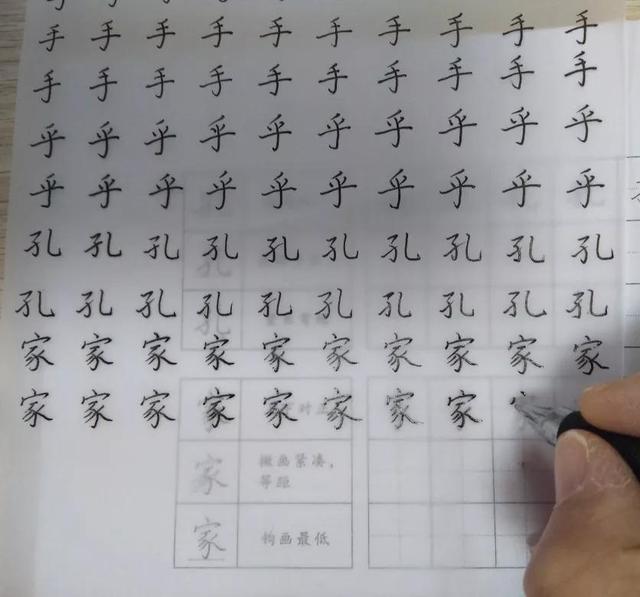 手手手手手手手手手手
手手手手手手手手手手
乎乎乎乎乎乎乎乎乎乎
乎乎乎乎乎乎乎乎乎乎
孔孔孔孔孔孔孔孔孔孔
孔孔孔孔孔孔孔孔孔孔
家家家家家家家家家家
家家家家家家家家
家 撇画紧凑，
等距
家 钩画最低